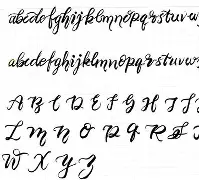 abcdefghijklmnopqrstuvw
abcdefghijklmnopqrstuvw
A B C D E F G H I J
L M N O P Q R S T
W X Y Z